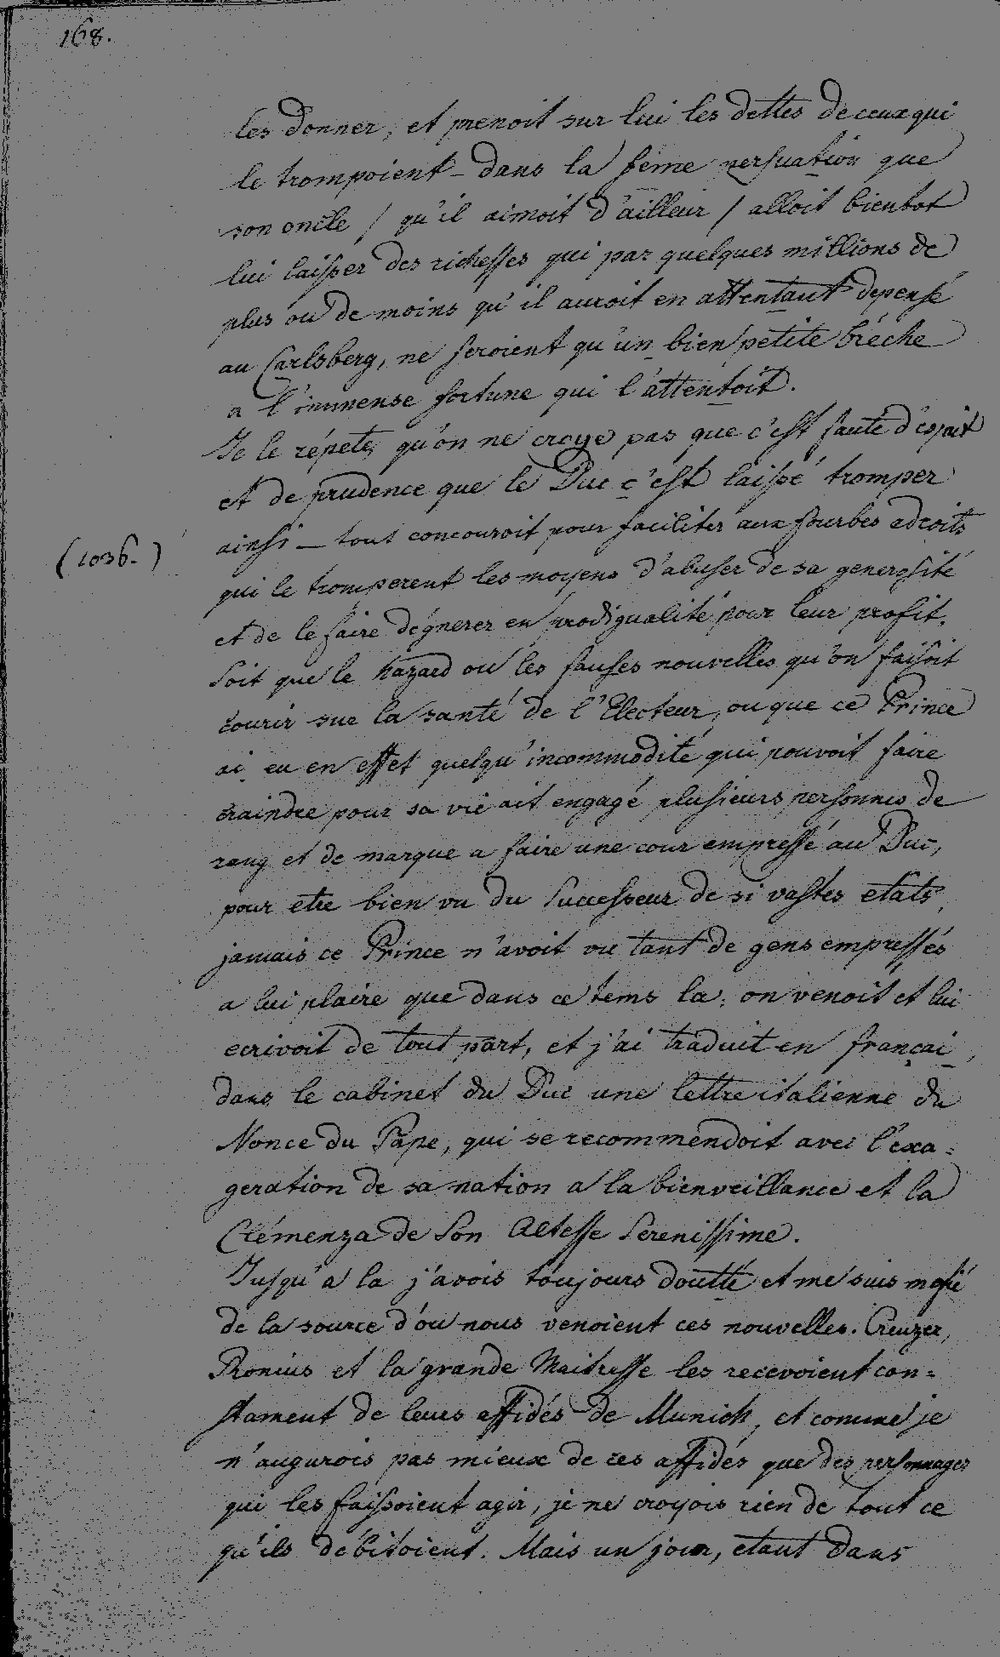 168.
les donner, et prenoit sur lui les dettes de ceux qui
le trompoient – dans la feme persuation que
son oncle / qu'il aimoit d'ailleur / alloit bientot
lui laisser des richesses qui par quelques millions de
plus ou de moins qu'il auroit en attentant depensé
au Carlsberg, ne seroient qu'un bien petite brèche
a l'immense fortune qui l'attentoit.
Je le répete, qu'on ne croye pas que c'est faute d'esprit
et de prudence que le Duc c'est laissé tromper
ainsi – tout concouroit pour faciliter aux fourbes adroits
(1036.)
qui le tromperent les moyens d'abuser de sa generosité
et de le faire dégnerer en prodigualité pour leur profit.
Soit que le hazard ou les fauses nouvelles qu'on faisoit
courir sur la santé de l'Electeur, ou que ce Prince
ai eu en effet quelqu'incommodité qui pouvoit faire
craindre pour sa vie ait engagé plusieurs personnes de
rang et de marque a faire une cour empressé au Duc,
pour etre bien vu du Successeur de si vastes etats,
jamais ce Prince n'avoit vu tant de gens empressés
a lui plaire que dans ce tems la; on venoit et lui
ecrivoit de tout part, et j'ai traduit en françai,
dans le cabinet du Duc une lettre italienne du
Nonce du Pape, qui se recommendoit avec l'exa=
geration de sa nation a la bienveillance et la
Clémenza de Son Altesse Serenissime.
Jusqu'a la j'avois toujours doutté et me suis mefié
de la source d'ou nous venoient ces nouvelles. Creuzer,
Pronius et la grande Maitresse les recevoient con=
stament de leurs affidés de Munich, et comme je
n'augurois pas mieux de ces affidés que des personnages
qui les faisoient agir, je ne croyois rien de tout ce
qu'ils débitoient. Mais un jour, etant dans